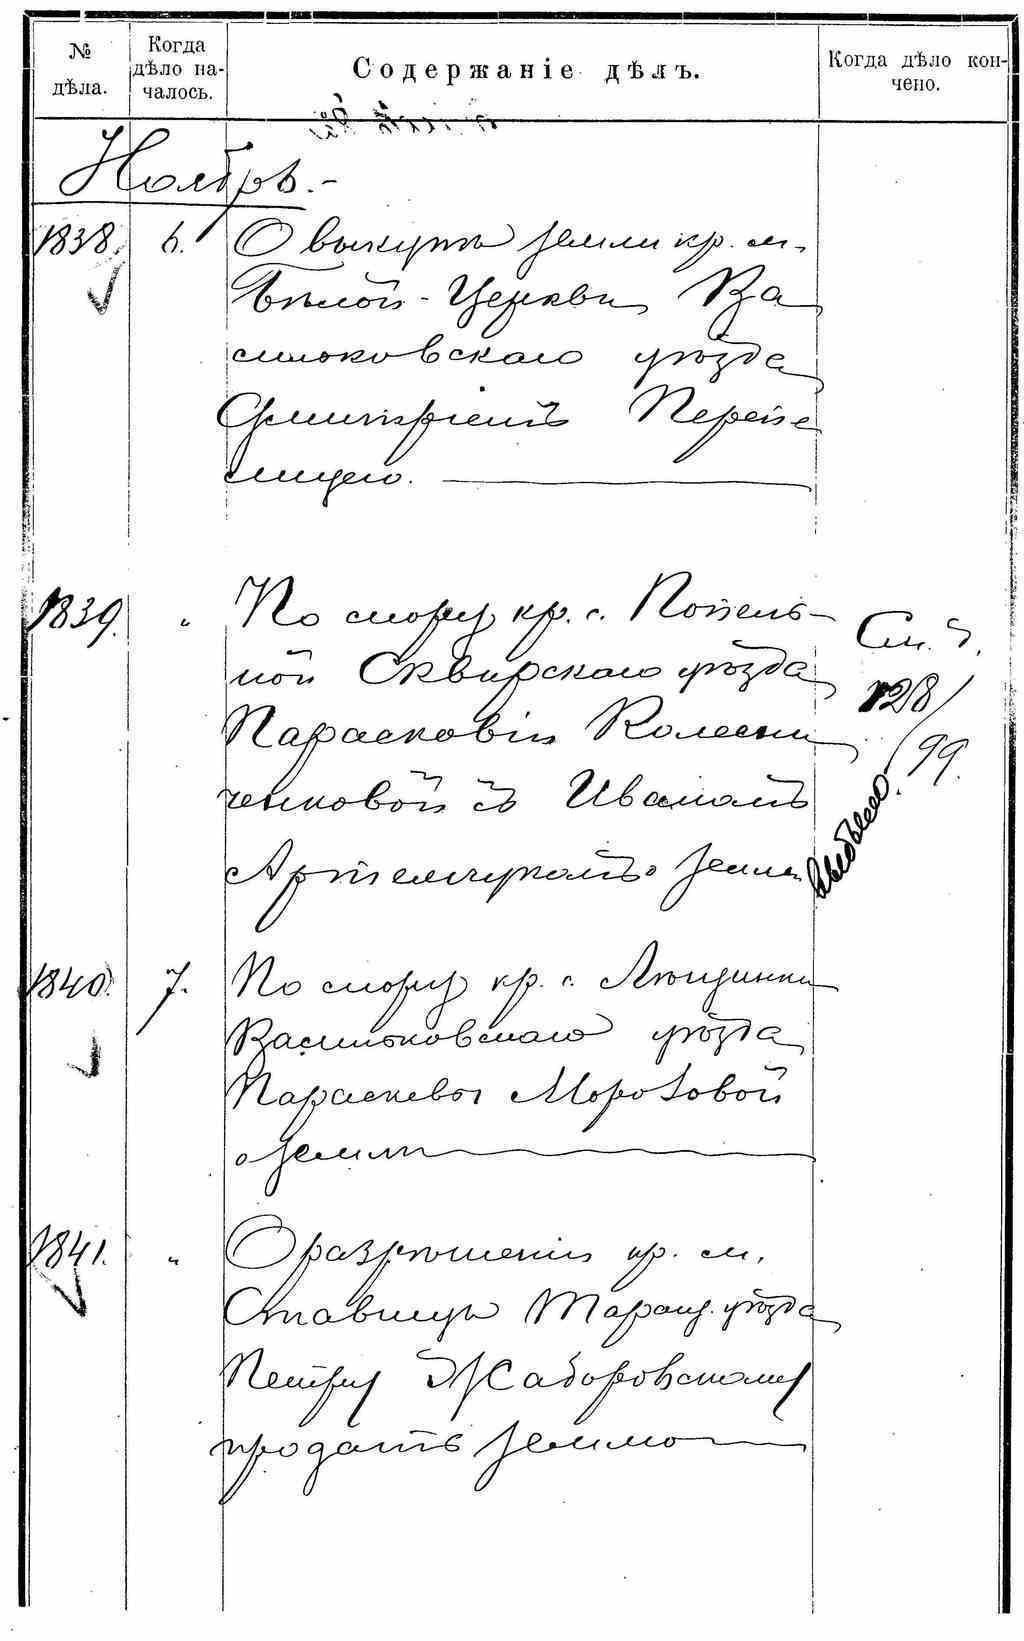 № дѣла.
Когда дѣло началось.
Содержаніе дѣлъ.
Когда дѣло кончено.
Ноябрь.-
1838. 6. О выкупѣ земли кр. м.
Бѣлой-Церкви Ва
сильковскаго уѣзда
Дмитріемъ
1839. " По спору кр. с. Попель-
ной Сквирскаго уѣзда
Парасковіи Колесни
ченковой съ Иваномъ
Артемчукомъ о земли
См. д.
128/99.
1840. 7. По спору кр. с.
Васильковскаго уѣзда
Параскевы Морозовой
о земли
1841. " О разрѣшеніи кр. м.
Ставищъ Таращ. уѣзда
Петру Жаборовскому
продать землю